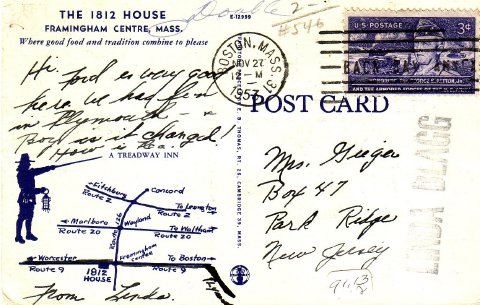 THE 1812 HOUSE
FRAMINGHAM CENTRE, MASS.
Where good food and tradition combine to please
Double 2-
#546
E-12999
Hi, Food is very good
here. We had fun
in Plymouth
Boy is it changed!
How is
A TREADWAY INN
Fitchburg
Route 2
Concord
To Lexington
Route 2
Marlboro
Route 20
Route 126
Wayland
To Waltham
Route 20
Worcester
Route 9
1812
HOUSE
Framingham
Centre
To Boston
Route 9
From Linda
BOSTON, MASS.
NOV 27
12 - M
1953
U.S. POSTAGE
3¢
GEORGE S. PATTON, JR.
AND THE ARMORED FORCES OF THE U.S. ARMY
POST CARD
THOMAS, CAMBRIDGE 39, MASS.
Mrs. Geiger
Box 47
Park Ridge
New Jersey
LINDA BLAGG